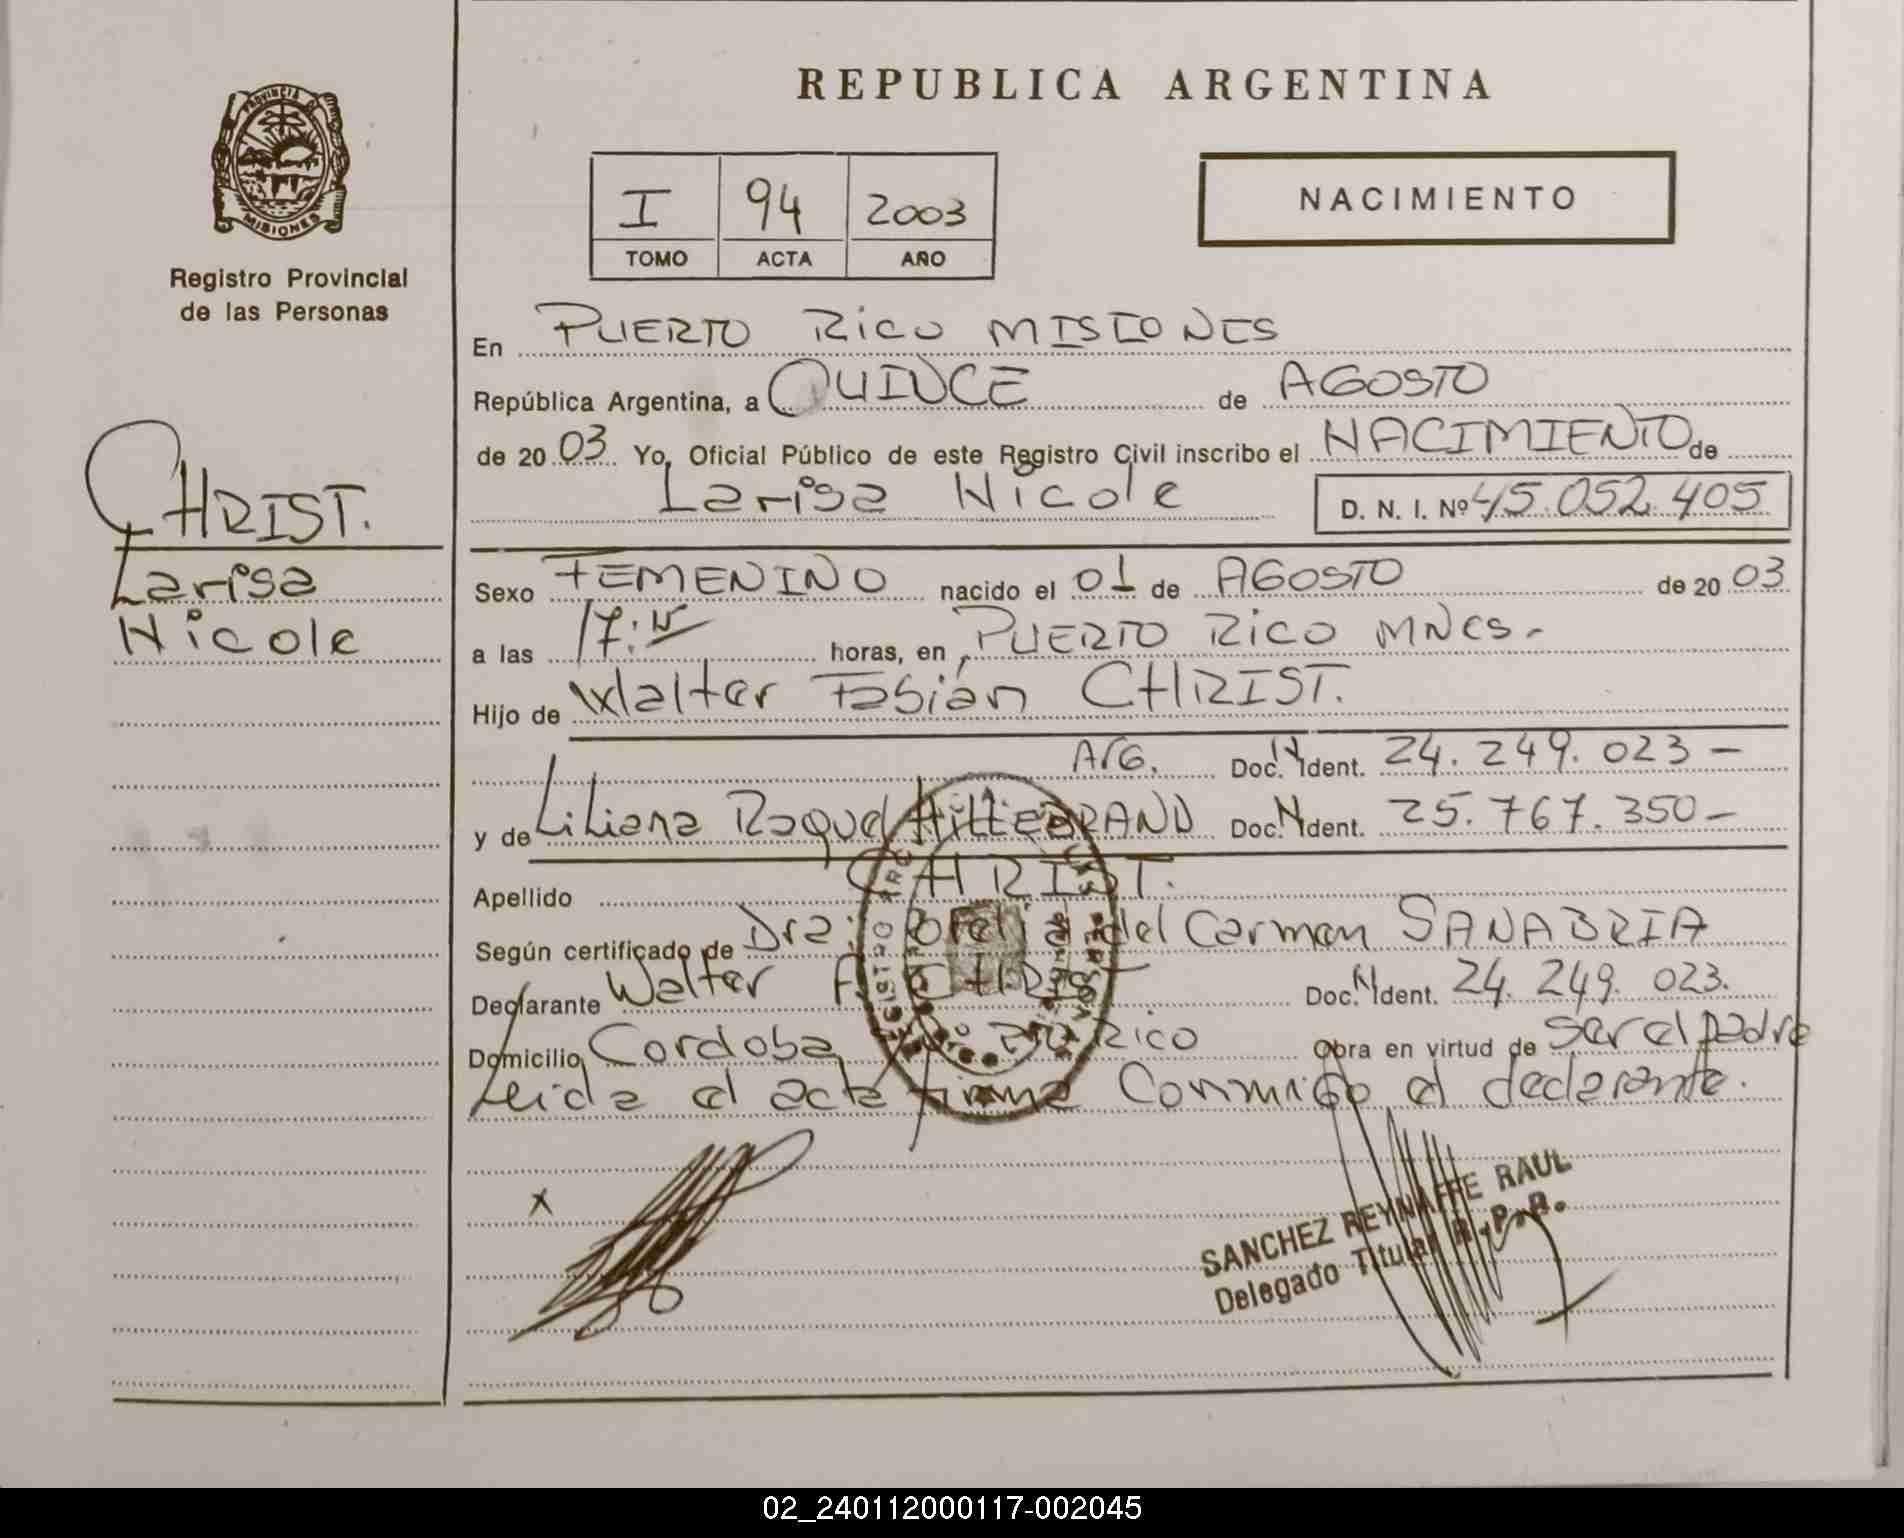 PROVINCIA DE
MISIONES
Registro Provincial
de las Personas
CHRIST.
Larisa
Nicole
REPUBLICA ARGENTINA
I 94 2003
TOMO ACTA AÑO
NACIMIENTO
En PUERTO RICO MISIONES
República Argentina, a QUINCE de AGOSTO
de 20 03 Yo, Oficial Público de este Registro Civil inscribo el NACIMIENTO de
Larisa Nicole D. N. I. Nº 45.052.405
Sexo FEMENINO nacido el 01 de AGOSTO de 20 03
a las 17:15 horas, en PUERTO RICO MNES.-
Hijo de Walter Fabián CHRIST.
ArG. Doc. N Ident. 24.249.023-
y de Liliana Raquel HILLEBRAND Doc. N Ident. 25.767.350-
Apellido CHRIST.
Según certificado de Dra: del Carmen SANABRIA
Declarante Walter F. CHRIST Doc. N Ident. 24.249.023.
Domicilio Cordoba Rico Obra en virtud de ser el padre
Leida el acta firma Conmigo el declarante.
X
SANCHEZ REYNAFFE RAUL
Delegado Titular R.P.P.
02_240112000117-002045